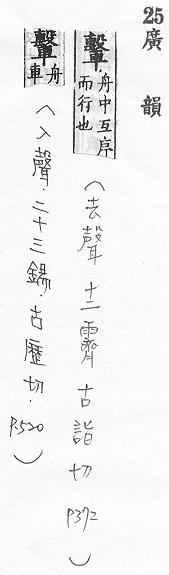 25 廣韻
轚 舟中互序而行也
(去聲 十二霽 古詣切 P372)
轚 舟車
(入聲.二十三錫.古歷切. P.520)